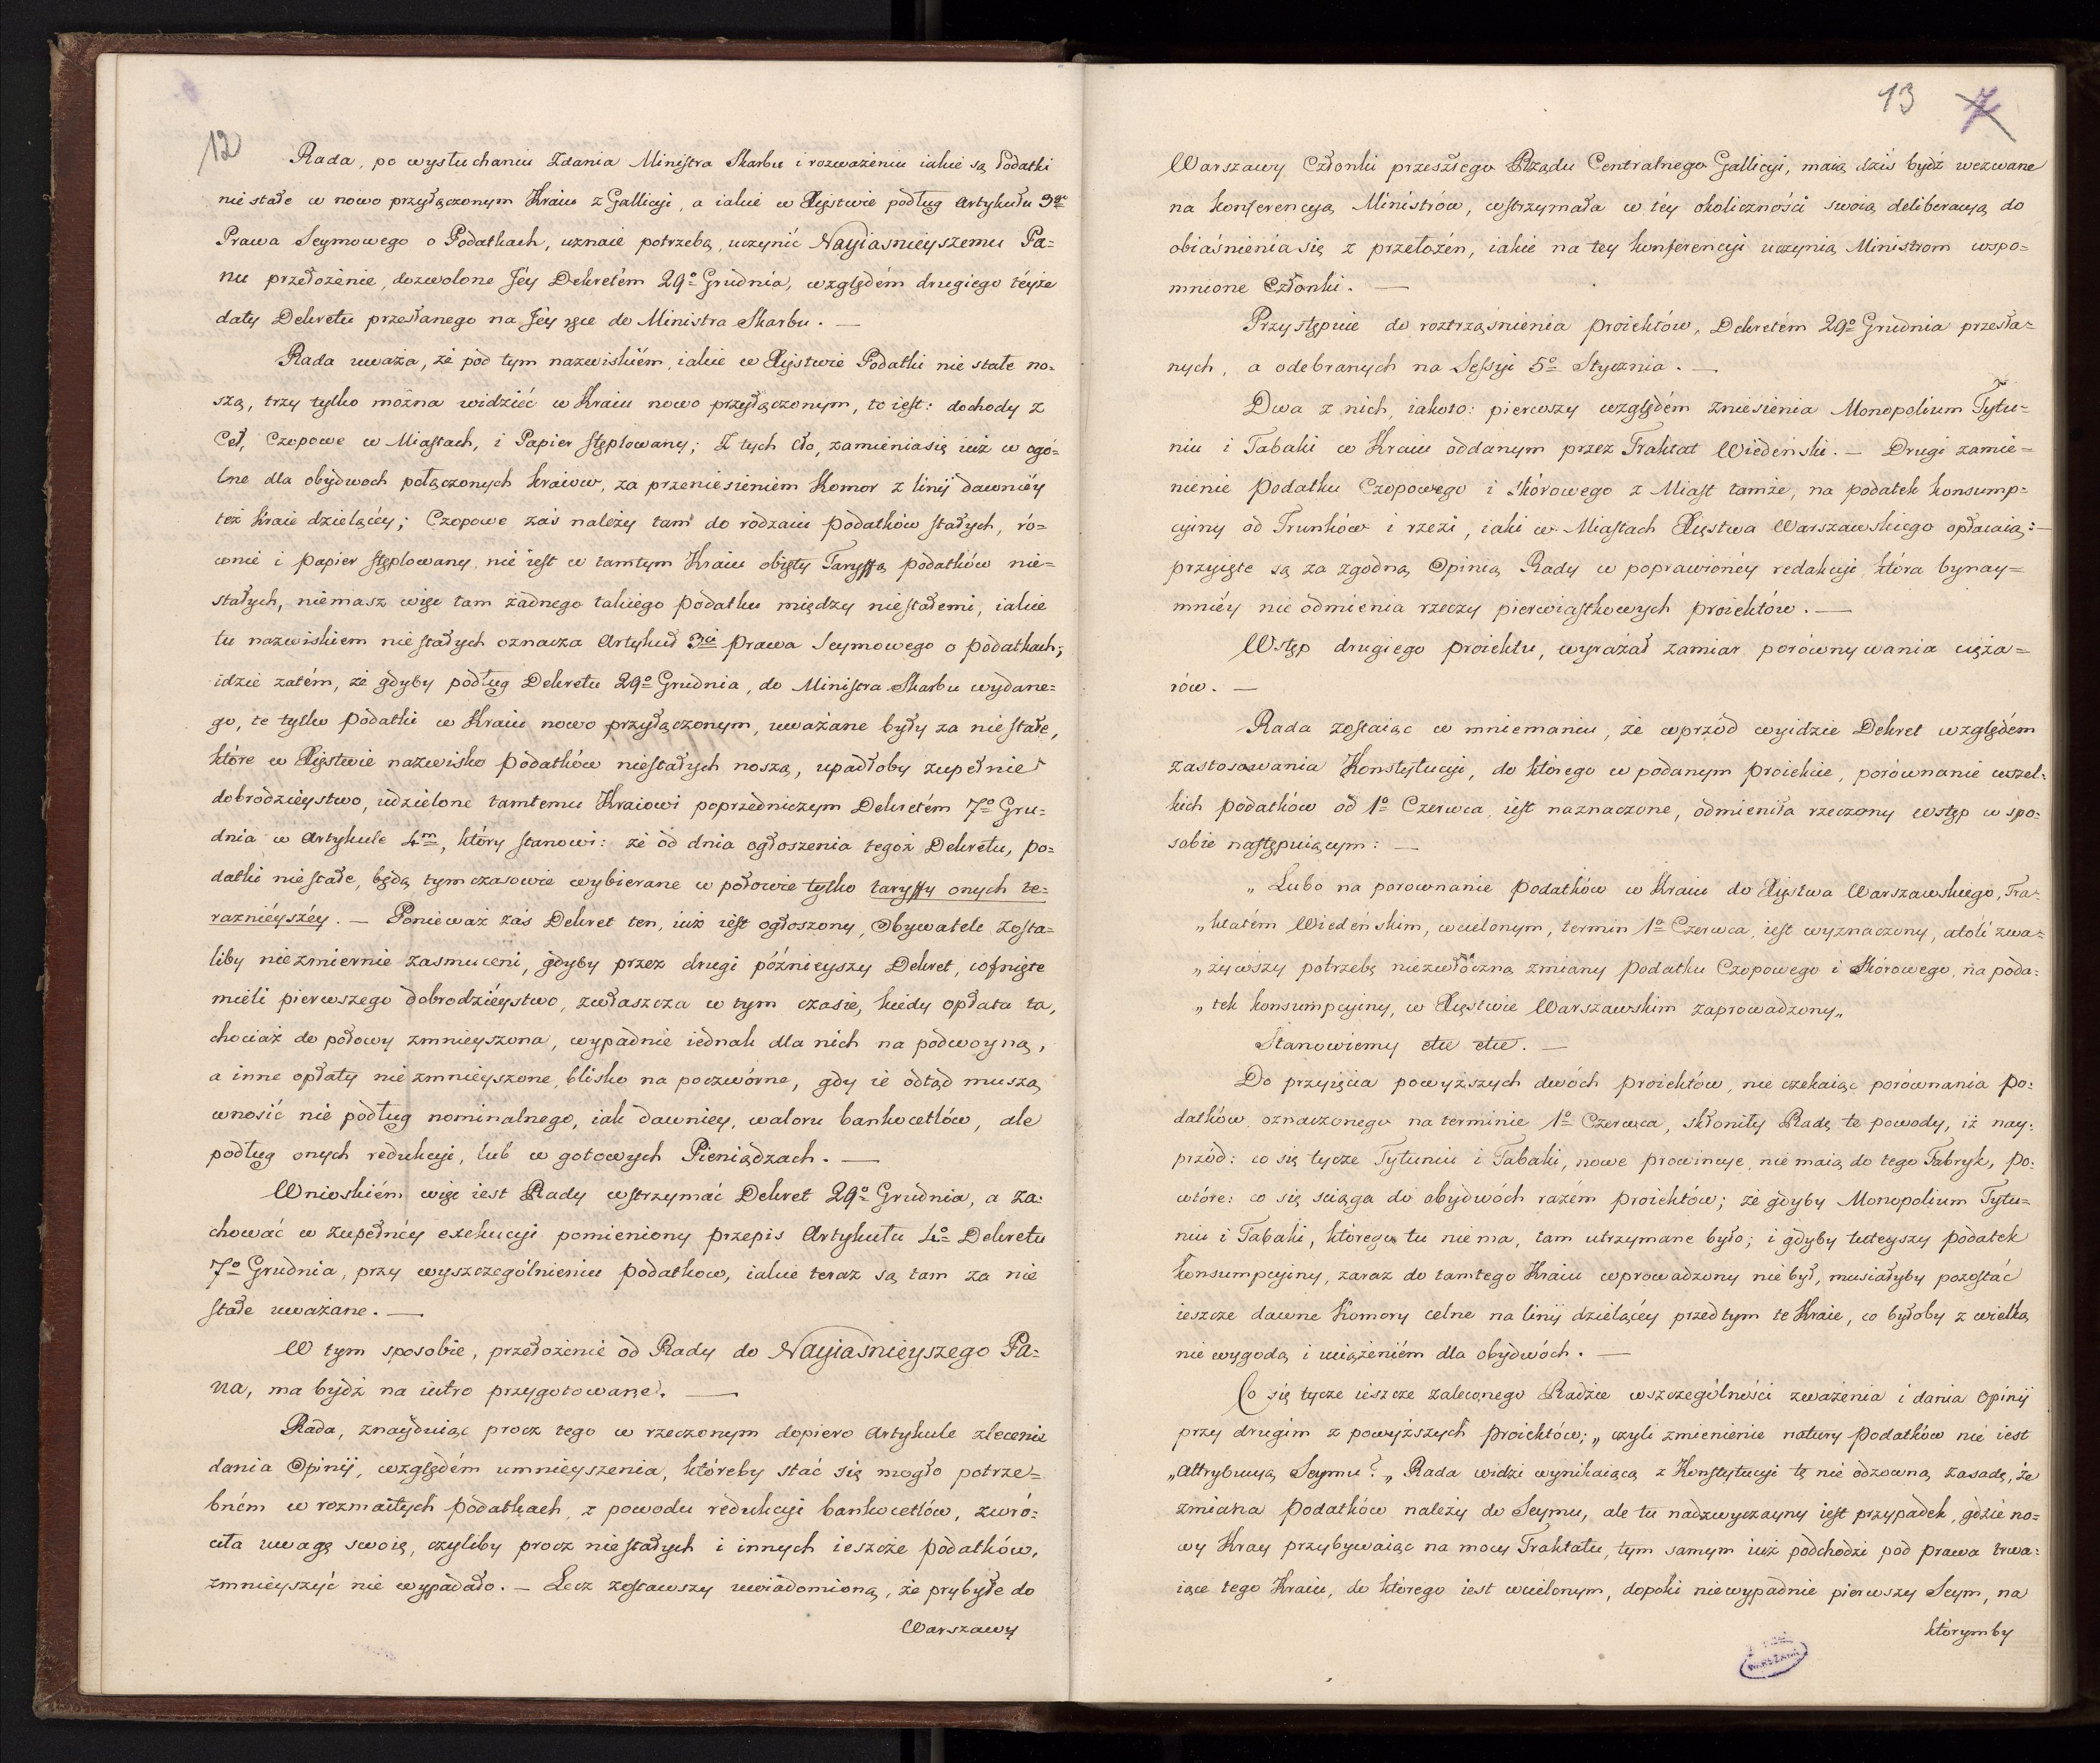 12
Rada, po wysłuchaniu Zdania Ministra Skarbu i rozważeniu iakie są Podatki
nie stałe w nowo przyłączonym Kraiu z Gallicyi, a iakie w Xięstwie podług Artykułu 3go
Prawa Seymowego o Podatkach, uznaie potrzebą, uczynić Nayiasnieyszemu Pa=
nu przełożenie, dozwolone Jéy Dekretém 29o Grudnia, względém drugiego téyże
daty Dekretu przesłanego na Jéy ręce do Ministra Skarbu. —
Rada uważa, że pod tym nazwiskiém, iakie w Xięstwie Podatki nie stałe no=
szą, trzy tylko można widzieć w Kraiu nowo przyłączonym, to iest: dochody z
Ceł, Czopowe w Miastach, i Papier stęplowany; Z tych Cło, zamienia się iuż w ogó=
lne dla obydwoch połączonych kraiów, za przeniesieniem Komor z linij dawniéy
też Kraie dzielącéy; Czopowe zaś należy tam do rodzaiu podatków stałych, ró=
wnie i papier stęplowany nie iest w tamtym Kraiu obięty Taryffą podatków nie=
stałych, niemasz więc tam żadnego takiego podatku między niestałemi, iakie
tu nazwiskiem nie stałych oznacza Artykuł 3ci prawa Seymowego o podatkach;
idzie zatém, że gdyby podług Dekretu 29o Grudnia, do Ministra Skarbu wydane=
go, te tylko podatki w Kraiu nowo przyłączonym, uważane były za nie stałe,
które w Xięstwie nazwisko podatków niestałych noszą, upadłoby zupełnie
dobrodzieystwo, udzielone tamtemu Kraiowi poprzedniczym Dekretém 7o Gru=
dnia w Artykule 4m, który stanowi: że od dnia ogłoszenia tegoż Dekretu, po=
datki nie stałe, będą tymczasowie wybierane w połowie tylko taryffy onych te=
raznieyszéy. — Ponieważ zaś Dekret ten, iuż iest ogłoszony, Obywatele zosta=
liby niezmiernie zasmuceni, gdyby przez drugi późnieyszy Dekret, cofnięte
mieli pierwszego dobrodziéystwo, zwłaszcza w tym czasie, kiedy opłata ta,
chociaż do połowy zmnieyszona, wypadnie iednak dla nich na podwoyną,
a inne opłaty nie zmnieyszone, blisko na poczwórne, gdy ie odtąd muszą
wnosić nie podług nominalnego, iak dawniey, waloru bankocetlów, ale
podług onych redukcyi, lub w gotowych Pieniądzach. —
Wnioskiém więc iest Rady wstrzymać Dekret 29o Grudnia, a za=
chować w zupełnéy exekucyi pomieniony przepis Artykułu 4o Dekretu
7o Grudnia, przy wyszczególnieniu podatkow, iakie teraz są tam za nie
stałe uważane. —
W tym sposobie, przełożenie od Rady do Nayiasnieyszego Pa=
na, ma bydź na iutro przygotowane. —
Rada, znayduiąc procz tego w rzeczonym dopiero Artykule zlecenie
dania Opinij, względém umnieyszenia, któreby stać się mogło potrze=
bném w rozmaitych podatkach, z powodu redukcyi bankocetlów, zwró=
ciła uwagę swoię, czyliby procz niestałych i innych ieszcze podatków,
zmnieyszyć nie wypadało. — Lecz zostawszy uwiadomioną, że prybyłe do
Warszawy
13 7
Warszawy Członki przeszłego Rządu Centralnego Gallicyi, maią dziś bydź wezwane
na konferencyą Ministrów, wstrzymała w téy okoliczności swoią deliberacyą do
obiaśnienia się z przełożén, iakie na tey konferencyi uczynią Ministrom wspo=
mnione Członki. —
Przystępuie do roztrząśnienia proiektów, Dekretém 29o Grudnia przesła=
nych, a odebranych na Sessyi 5o Stycznia. —
Dwa z nich, iakoto: pierwszy względém zniesienia Monopolium Tytu=
niu i Tabaki w Kraiu oddanym przez Traktat Wiedeński. — Drugi zamie=
nienie podatku Czopowego i Skórowego z Miast tamże, na podatek konsump=
cyiny od Trunków i rzezi, iaki w Miastach Xięstwa Warszawskiego opłacaią: —
przyięte są za zgodną Opinią Rady w poprawionéy redakcyi, która bynay=
mniéy nie odmienia rzeczy pierwiastkowych proiektów. —
Wstęp drugiego proiektu, wyrażał zamiar porównywania cięża=
rów. —
Rada zostaiąc w mniemaniu, że wprzód wyidzie Dekret względém
zastosowania Konstytucyi, do którego w podanym proiekcie, porównanie wszel=
kich podatków od 1o Czerwca, iest naznaczone, odmieniła rzeczony wstęp w spo=
sobie następuiącym: —
„ Lubo na porownanie podatków w Kraiu do Xięstwa Warszawskiego, Tra=
„ktatém Wiedeńskim, wcielonym, termin 1o Czerwca, iest wyznaczony, atoli zwa=
„żywszy potrzebę niezwłóczną zmiany podatku Czopowego i Skórowego, na poda=
„tek konsumpcyiny, w Xięstwie Warszawskim zaprowadzony„
Stanowiemy etc etc. —
Do przyięcia powyższych dwóch proiektów, nie czekaiąc porównania po=
datków, oznaczonego na terminie 1o Czerwca, skłoniły Radę te powody, iż nay=
przód: co się tycze Tytuniu i Tabaki, nowe prowincye, nie maią do tego Fabryk, po=
wtóre: co się sciąga do obydwóch razém proiektów; że gdyby Monopolium Tytu=
niu i Tabaki, którego tu nie ma, tam utrzymane było; i gdyby tuteyszy podatek
konsumpcyiny, zaraz do tamtego Kraiu wprowadzony nie był, musiałyby pozostać
ieszcze dawne Komory celne na linij dzielącéy przedtym te Kraie, co byłoby z wielką
nie wygodą i uciążeniém dla obydwóch. —
Co się tycze ieszcze zaleconego Radzie wszczególności zważenia i dania Opinij
przy drugim z powyższych proiektów; „ czyli zmienienie natury podatków nie iest
„Attrybucyą Seymu? „ Rada widzi wynikaiącą z Konstytucyi tę nie odzowną zasadę, że
zmiana podatków należy do Seymu, ale tu nadzwyczayny iest przypadek, gdzie no=
wy Kray przybywaiąc na mocy Traktatu, tym samym iuż podchodzi pod prawa trwa=
iące tego Kraiu, do którego iest wcielonym, dopoki niewypadnie pierwszy Seym, na
którymby